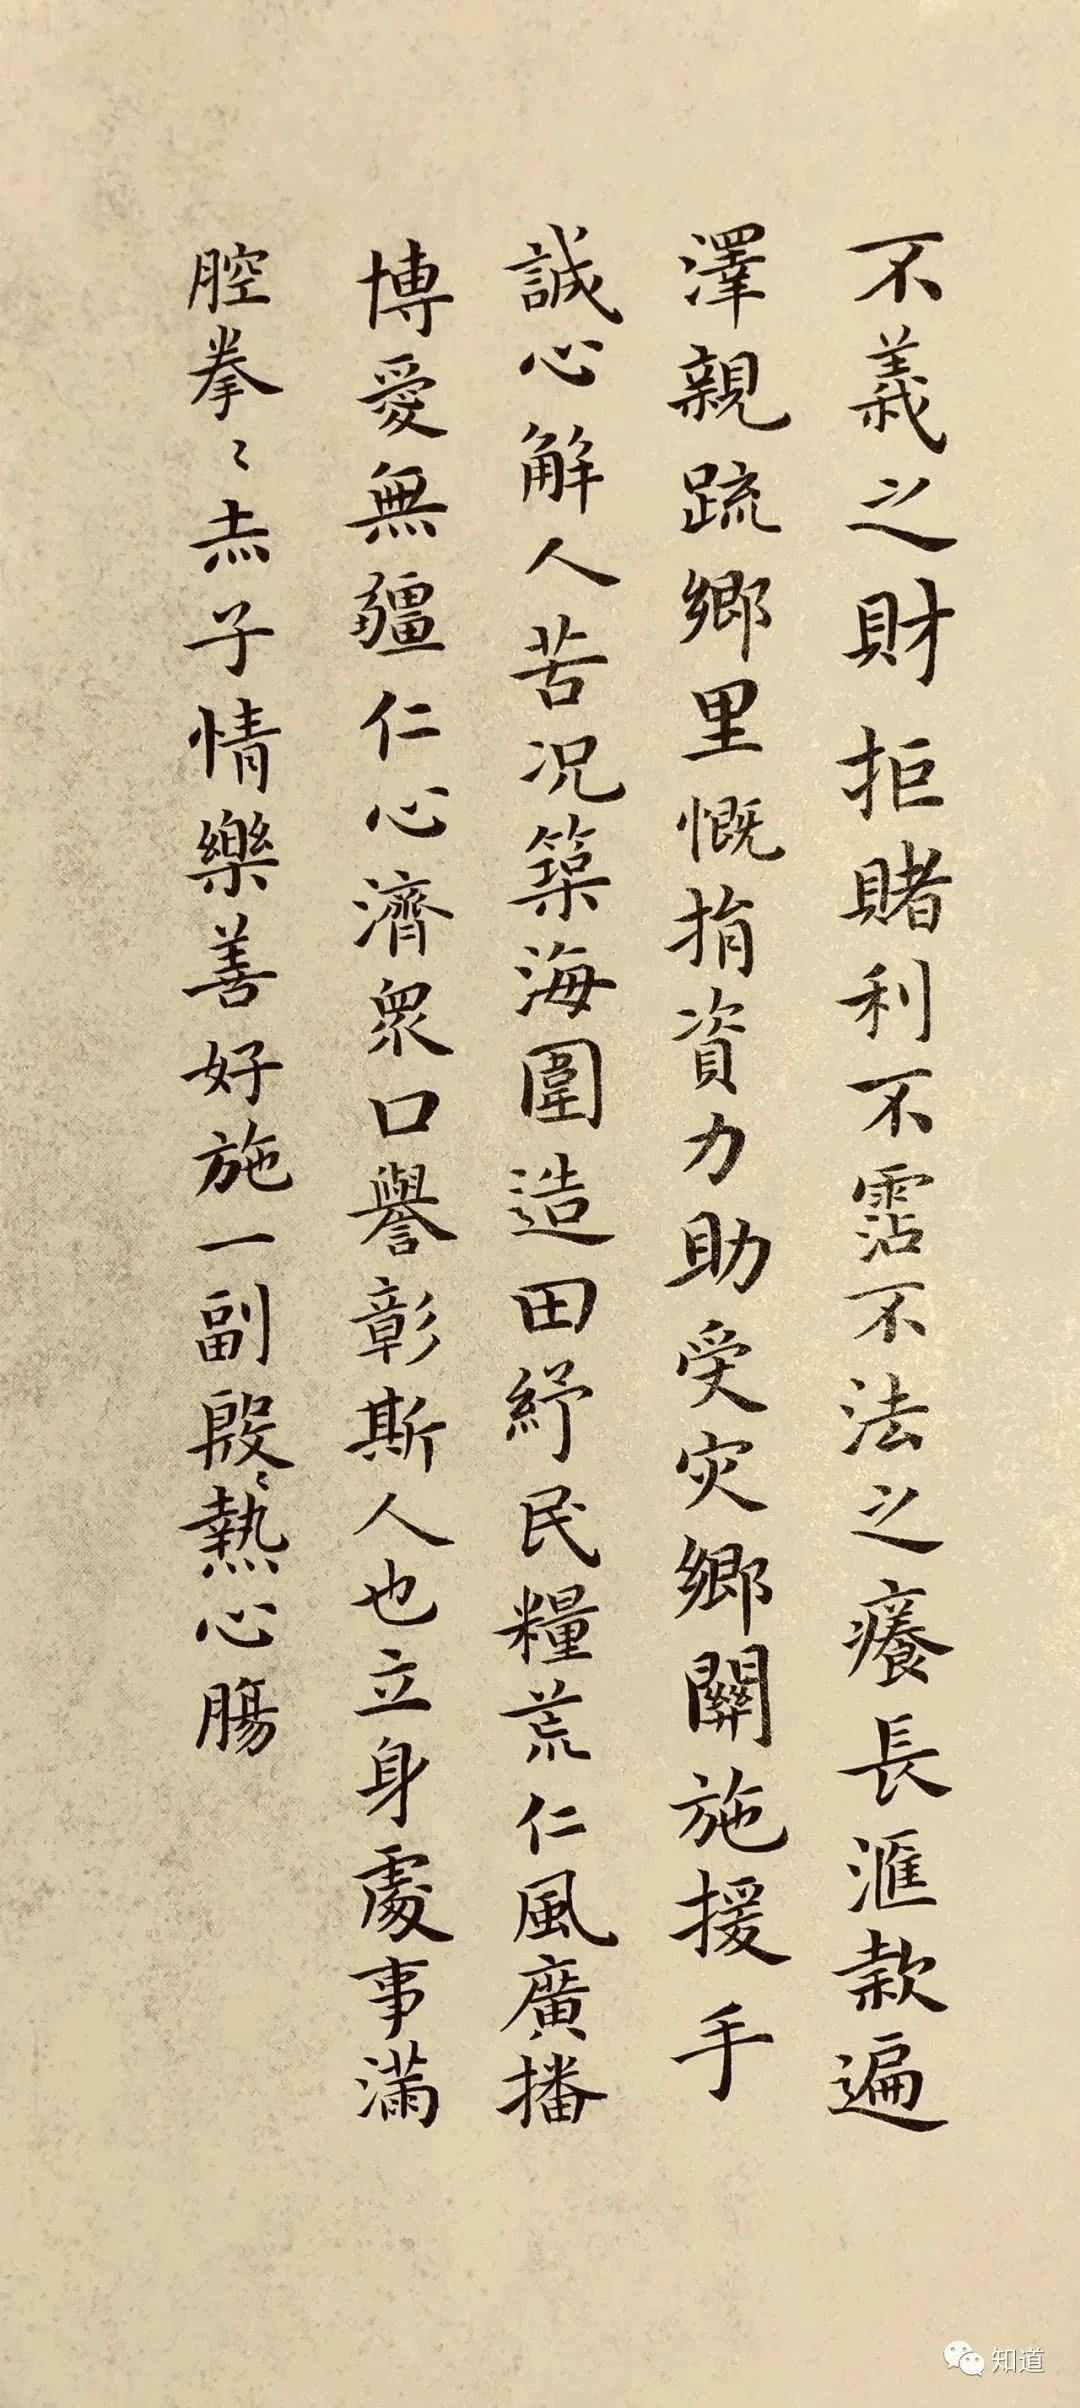 不義之財拒賭利不霑不法之癢長滙款遍
澤親疏鄉里慨捐資力助受灾鄉關施援手
誠心解人苦况築海圍造田紓民糧荒仁風廣播
博愛無疆仁心濟眾口譽彰斯人也立身處事滿
腔拳〻赤子情樂善好施一副殷〻熱心腸
知道